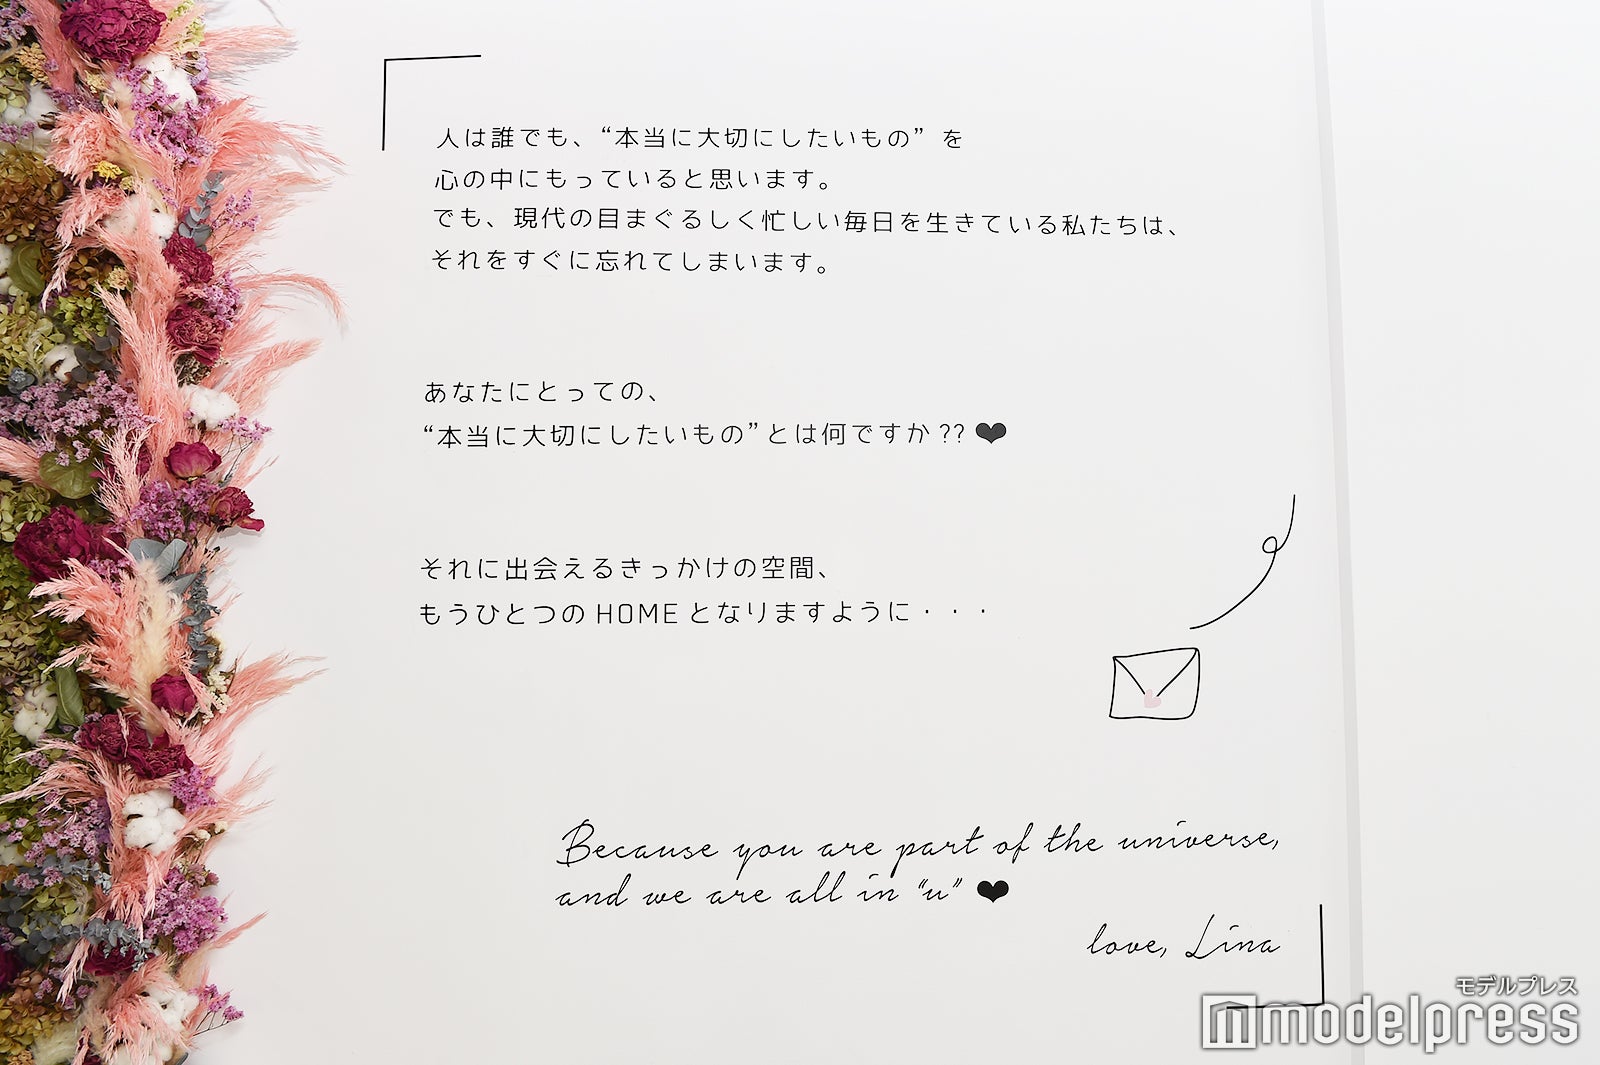 人は誰でも、“本当に大切にしたいもの” を
心の中にもっていると思います。
でも、現代の目まぐるしく忙しい毎日を生きている私たちは、
それをすぐに忘れてしまいます。
あなたにとっての、
“本当に大切にしたいもの”とは何ですか??❤
それに出会えるきっかけの空間、
もうひとつのHOMEとなりますように・・・
Because you are part of the universe,
and we are all in “u” ❤
love, Lina
モデルプレス
modelpress